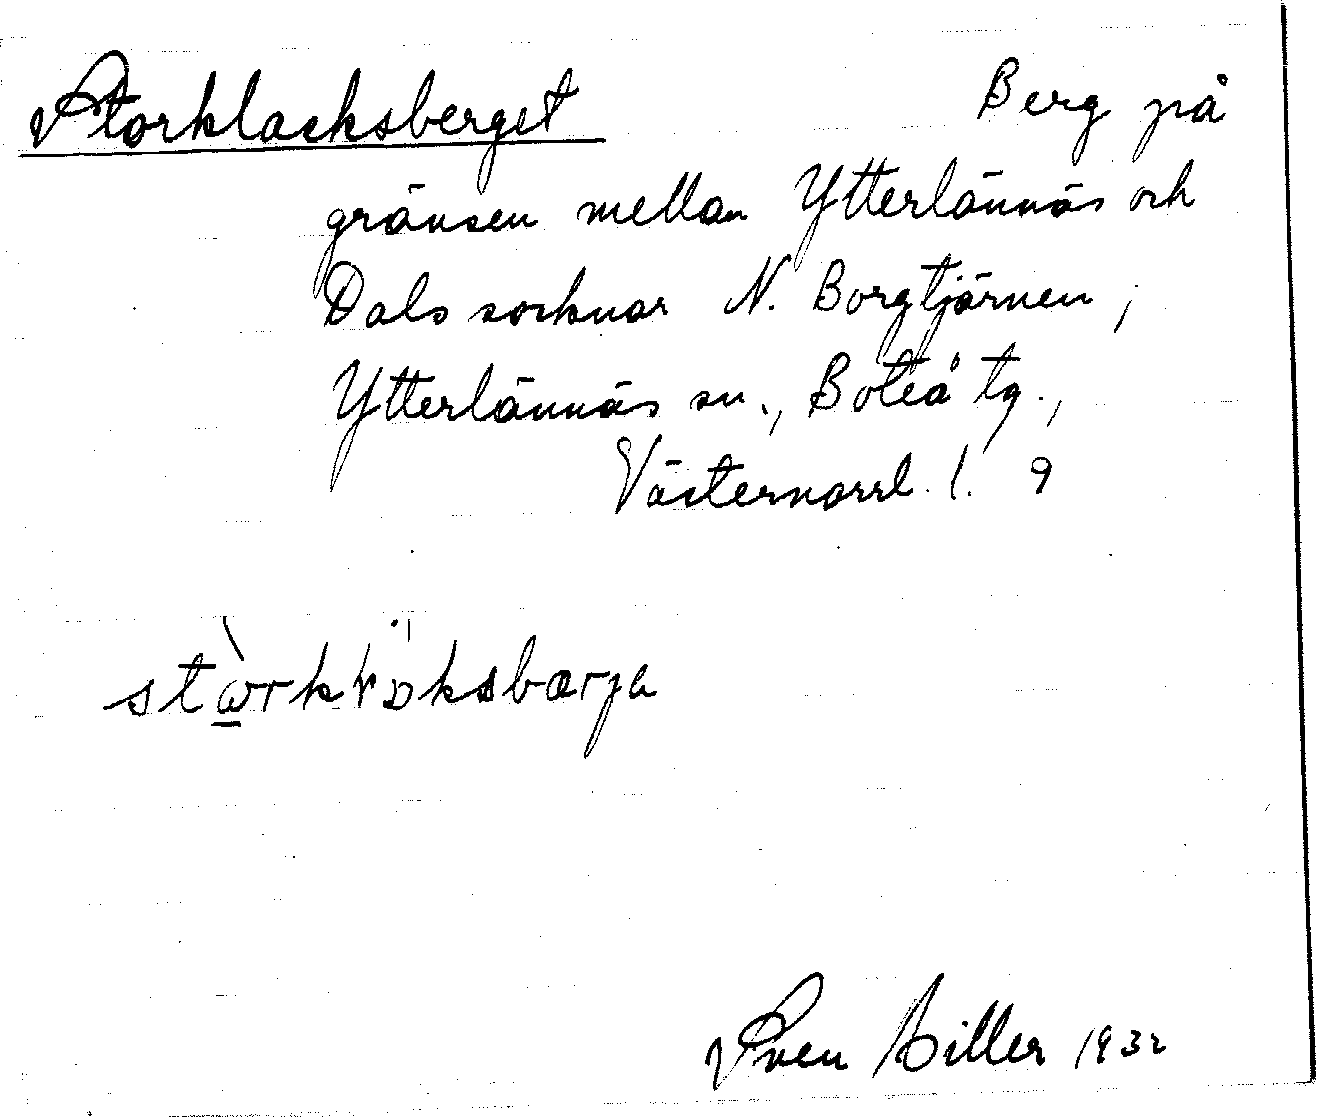 Storklacksberget Berg på
gränsen mellan Ytterlännäs och
Dals socknar N. Borgtjärnen,
Ytterlännäs sn., Boteå tg.,
Västernorrl. l. 9
Sven Biller 1932